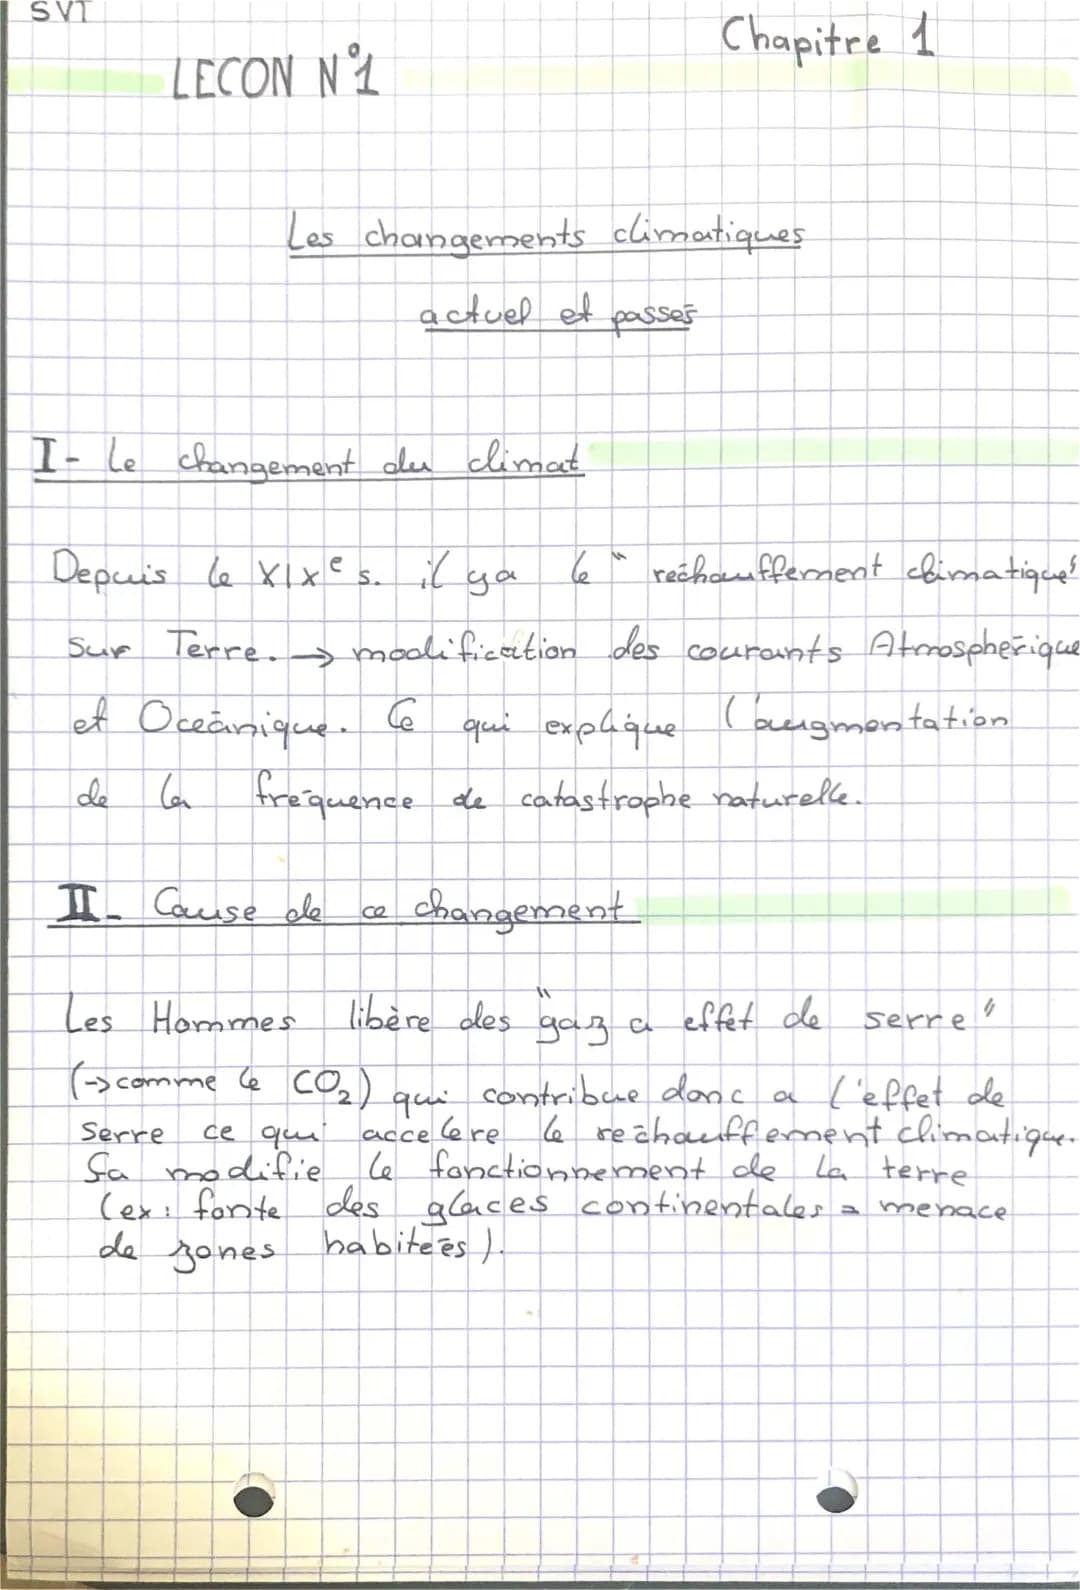 SVT
Chapitre 1
LECON N°1
Les changements climatiques
actuel et passés
I- Le changement du climat
Depuis le XIXe s. il y a le "réchauffement climatique"
sur Terre. → modification des courants Atmosphérique
et Océanique. Ce qui explique l'augmentation
de la fréquence de catastrophe naturelle.
II- Cause de ce changement
Les Hommes libère des "gaz a effet de serre"
(→ comme le CO2) qui contribue donc a l'effet de
serre ce qui accelere le réchauffement climatique.
Ça modifie le fonctionnement de la terre
(ex: fonte des glaces continentales = menace
de zones habitées).